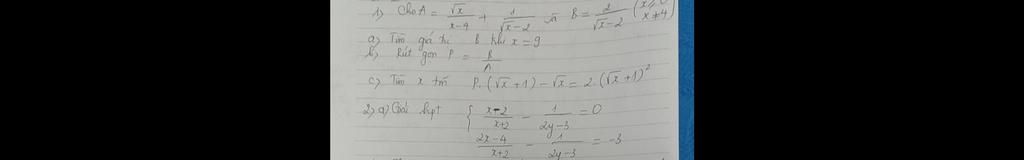 1) Cho A = √x/(x-4) + 1/(√x-2) và B = 2/(√x-2) (x≥0 x≠4)
a) Tìm giá trị B khi x = 9
b) Rút gọn P = B/A
c) Tìm x tm P.(√x+1) - √x = 2.(√x+1)²
2) a) Giải hpt { (x-2)/(x+2) - 1/(2y-3) = 0
(2x-4)/(x+2) - 1/(2y-3) = -3